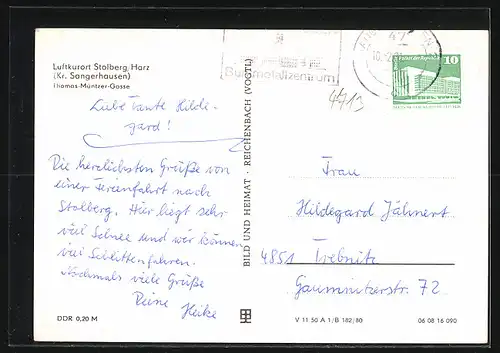 Luftkurort Stolberg/Harz
(Kr. Sangerhausen)
Thomas-Müntzer-Gasse
Liebe Tante Hilde-
gard!
Die herzlichsten Grüße von
einer Ferienfahrt nach
Stolberg. Hier liegt sehr
viel Schnee und wir können
viel Schlittenfahren.
Nochmals viele Grüße
Deine Heike
DDR 0,20 M
BILD UND HEIMAT · REICHENBACH (VOGTL)
Buntmetallzentrum
47
10
Frau
Hildegard Jähnert
4851 Trebnitz
72
V 11 50 A 1/B 182/80
06 08 16 090